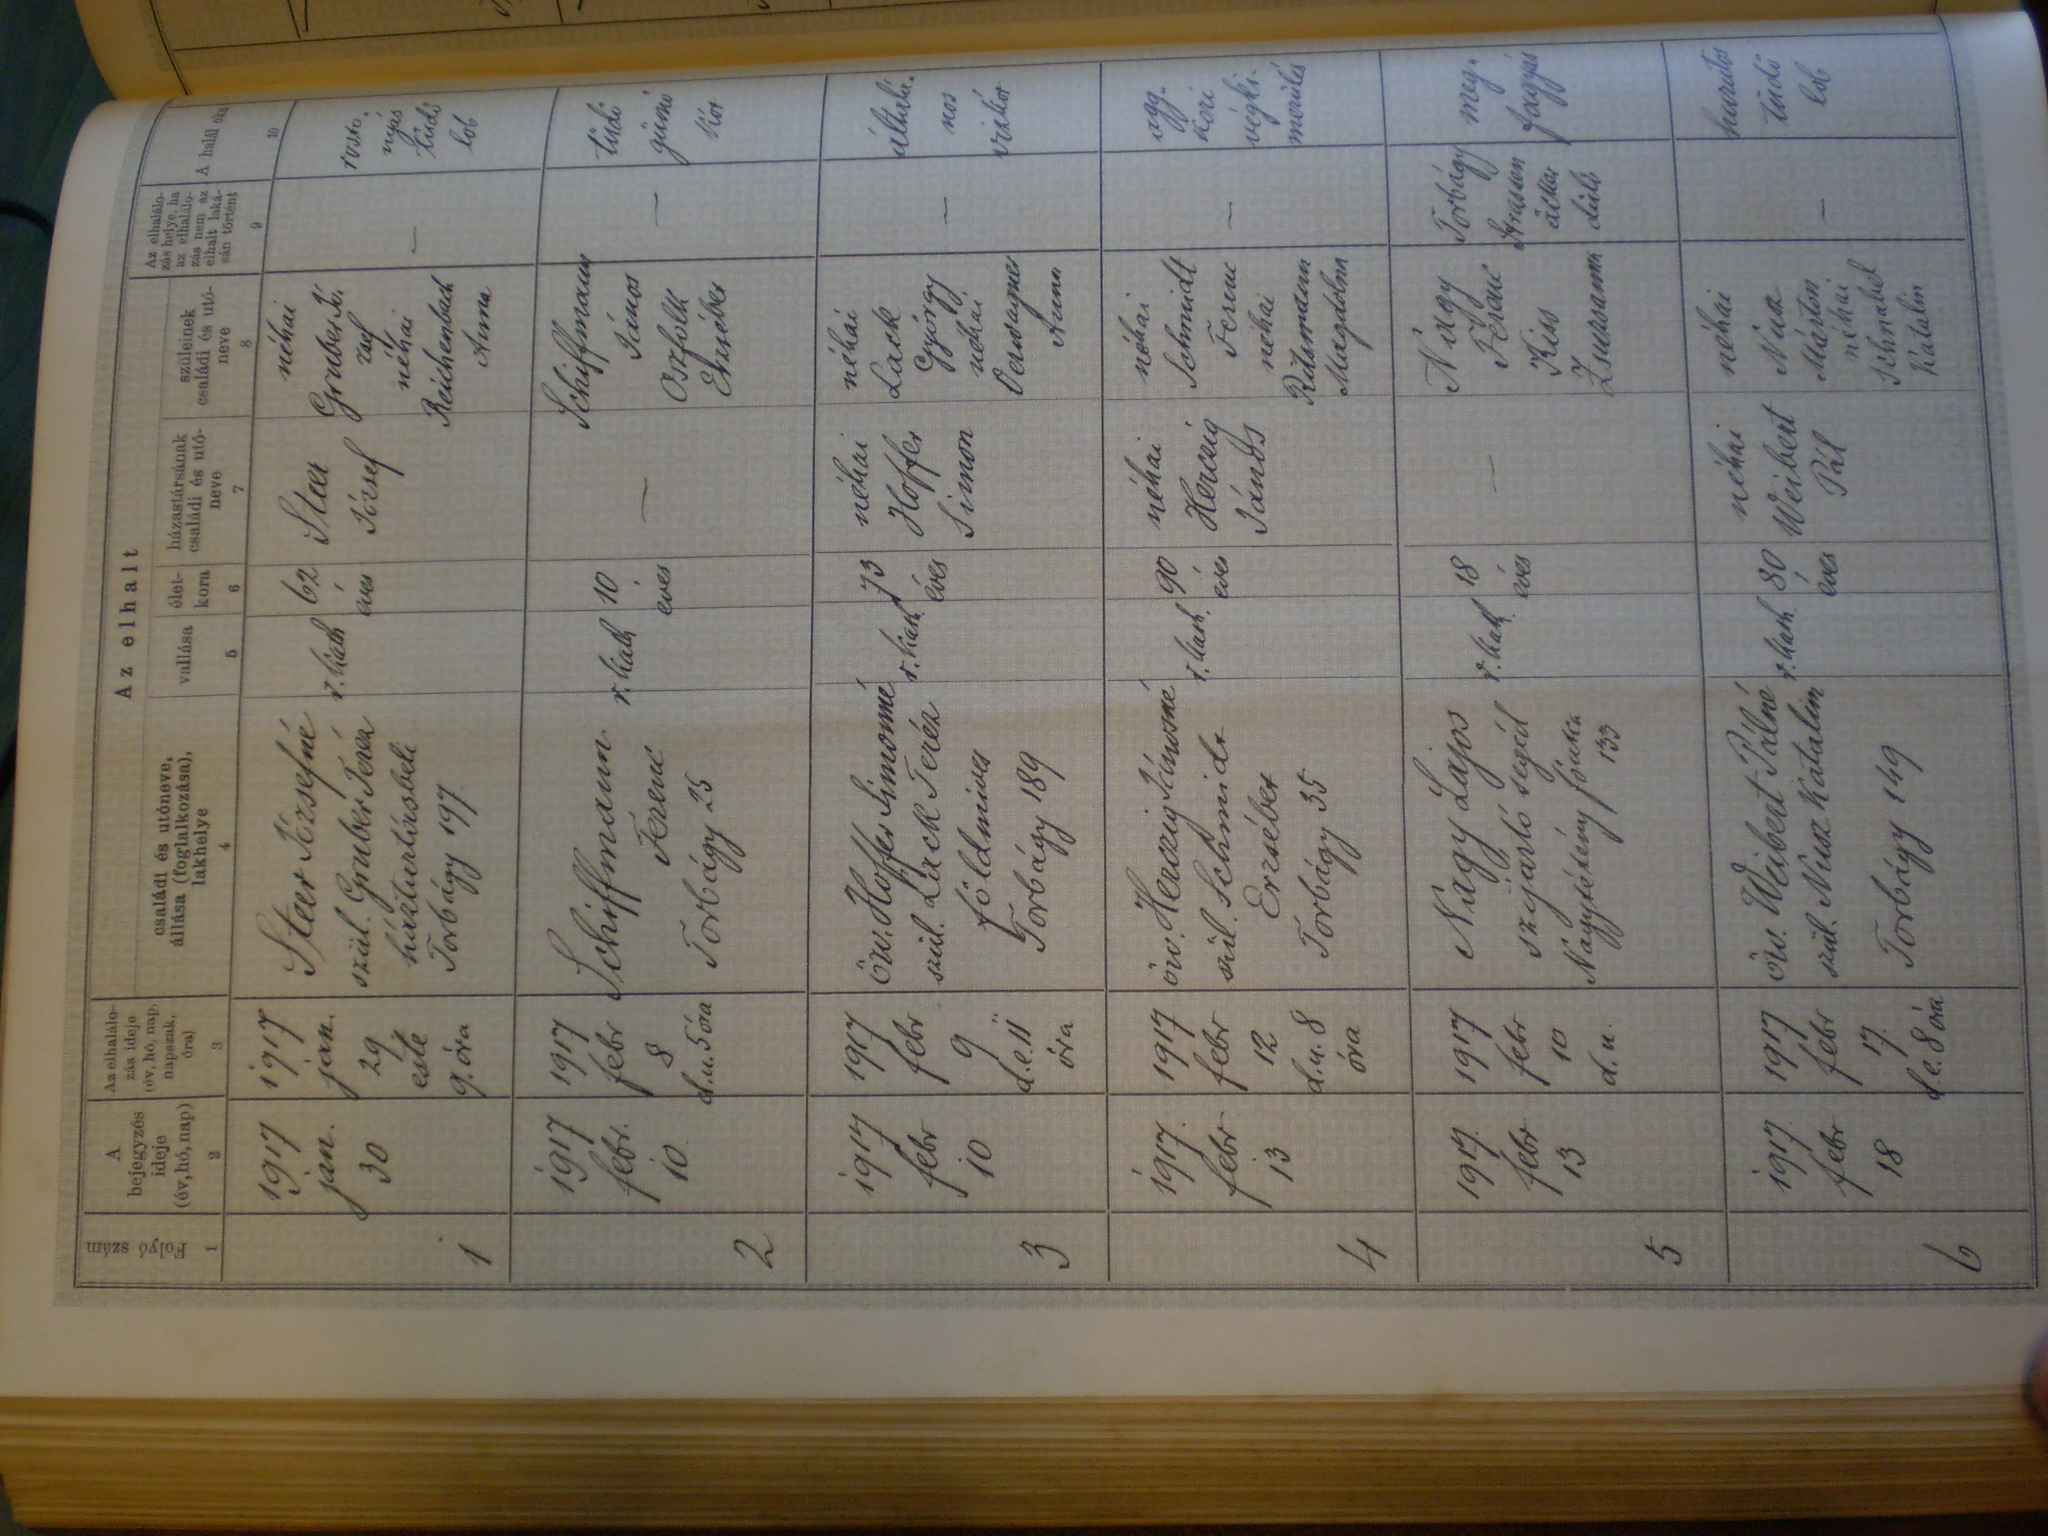 Az elhalt
Folyó szám
A bejegyzés ideje (év, hó, nap)
Az elhalálozás ideje (év, hó, nap, napszak, óra)
családi és utóneve, állása (foglalkozása), lakhelye
vallása
életkora
házastársának családi és utóneve
szüleinek családi és utóneve
Az elhalálozás helye, ha az elhalálozás nem az elhalt lakásán történt
A halál oka
1 2 3 4 5 6 7 8 9 10
1
1917
jan.
30
1917
jan.
29
este
9. óra
Steer Józsefné
szül. Gruber Teréz
háztartásbeli
Torbágy 197.
r. kath
62
éves
Steer
József
néhai
Gruber Jó-
zsef
néhai
Reichenbach
Anna
—
rosto-
nyás
tüdő
lob
2
1917
febr.
10.
1917
febr
8
d.u. 5 óra
Schiffmann
Ferenc
Torbágy 25
r. kath
10
éves
—
Schiffmann
János
Oszfolk
Erzsébet
—
tüdő
gümő
kór
3
1917
febr
10
1917
febr
9
d.e. 11
óra
özv. Hoffer Simonné
szül. Lack Teréz
földmíves
Torbágy 189
r. kath.
73
éves
néhai
Hoffer
Simon
néhai
Lack
György
néhai
Anna
—
általá-
nos
vízkór
4
1917.
febr
13
1917
febr
12
d.u. 8
óra
özv. Herczig Jánosné
szül. Schmidt
Erzsébet
Torbágy 35
r. kath.
90
éves
néhai
Herczig
János
néhai
Schmidt
Ferenc
néhai
Ritsmann
Magdolna
—
agg-
kori
végki-
merülés
5
1917.
febr
13
1917
febr
10
d.u.
Nagy Lajos
szijgyártó segéd
Nagytétény főutca
133
r. kath.
18
éves
—
Nagy
Ferenc
Kiss
Zsuzsanna
Torbágy
Strassen
äcker
dülő
meg-
fagyás
6
1917.
febr
18
1917
febr
17.
d.e. 8 óra
özv. Weibert Pálné
szül. Nusz Katalin
Torbágy 149
r. kath.
80
éves
néhai
Weibert
Pál
néhai
Nusz
Márton
néhai
Schnabel
Katalin
—
hurutos
tüdő
lob